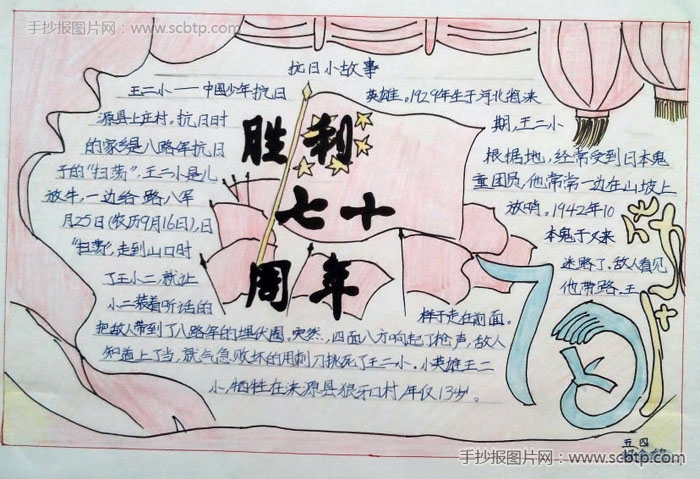 手抄报图片网：www.scbtp.com
抗日小故事
王二小——中国少年抗日英雄。1929年生于河北省涞
源县上庄村。抗日时期，王二小
的家乡是八路军抗日根据地，经常受到日本鬼
子的“扫荡”，王二小是儿童团员，他常常一边在山坡上
放牛，一边给路八军放哨。1942年10
月25日（农历9月16日），日本鬼子又来
“扫荡”，走到山口时迷路了。敌人看见
了王小二就让他带路。王
小二装着听话的样子走在前面。
把敌人带到了八路军的埋伏圈。突然，四面八方响起了枪声，敌人
知道上了当，就气急败坏的用刺刀挑死了王二小。小英雄王二
小，牺牲在涞源县狼牙口村，年仅13岁。
胜利
七十
周年
70
五四
手抄报图片网：www.scbtp.com